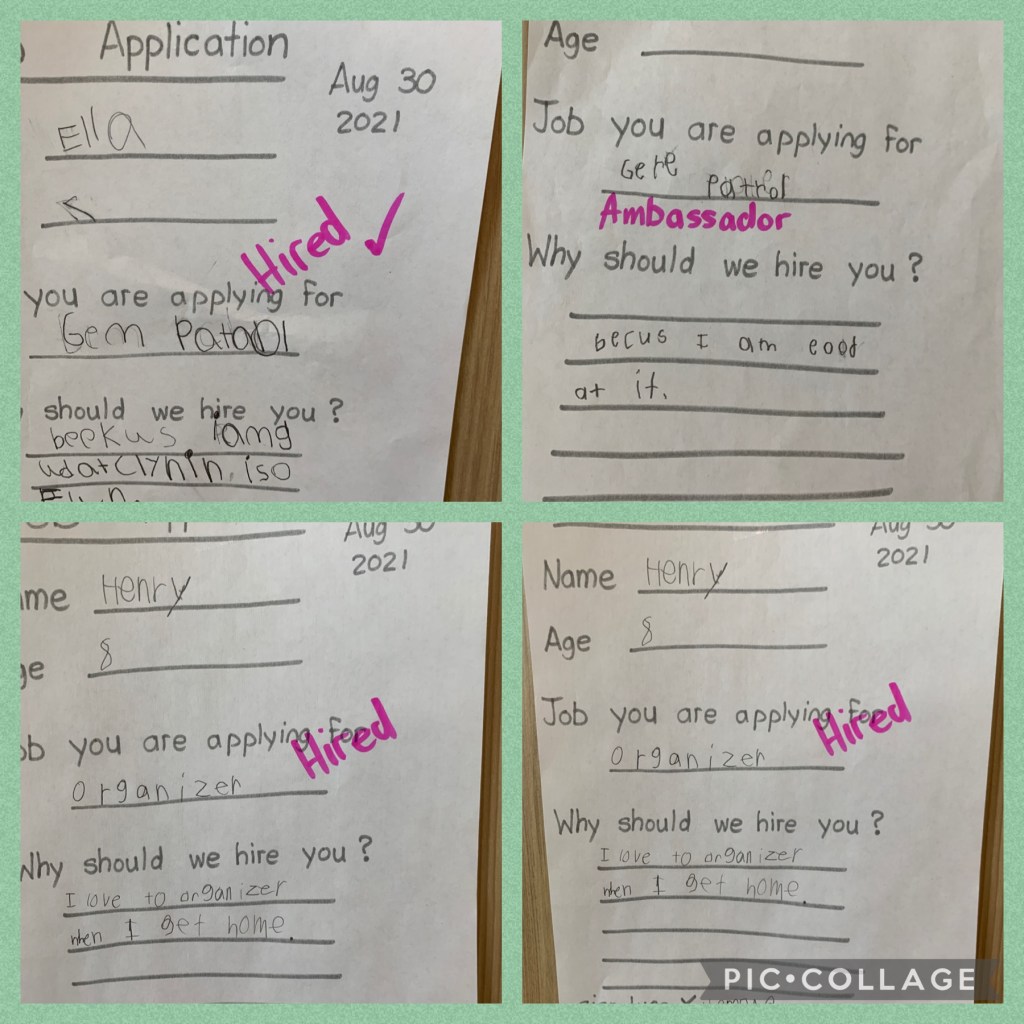 Application
Aug 30
2021
Ella
5
Hired ✓
you are applying for
Gem Pataol
should we hire you?
beekus iamg
udatclynin. iso
Age
Job you are applying for
Gere Patrol
Ambassador
Why should we hire you?
becus I am good
at it.
Aug 30
2021
me Henry
ge 8
ob you are applying for
Hired
organizer
Why should we hire you?
I love to organizer
when I get home.
Aug 30
2021
Name Henry
Age 8
Job you are applying for
Hired
organizer
Why should we hire you?
I love to organizer
when I get home.
PIC•COLLAGE